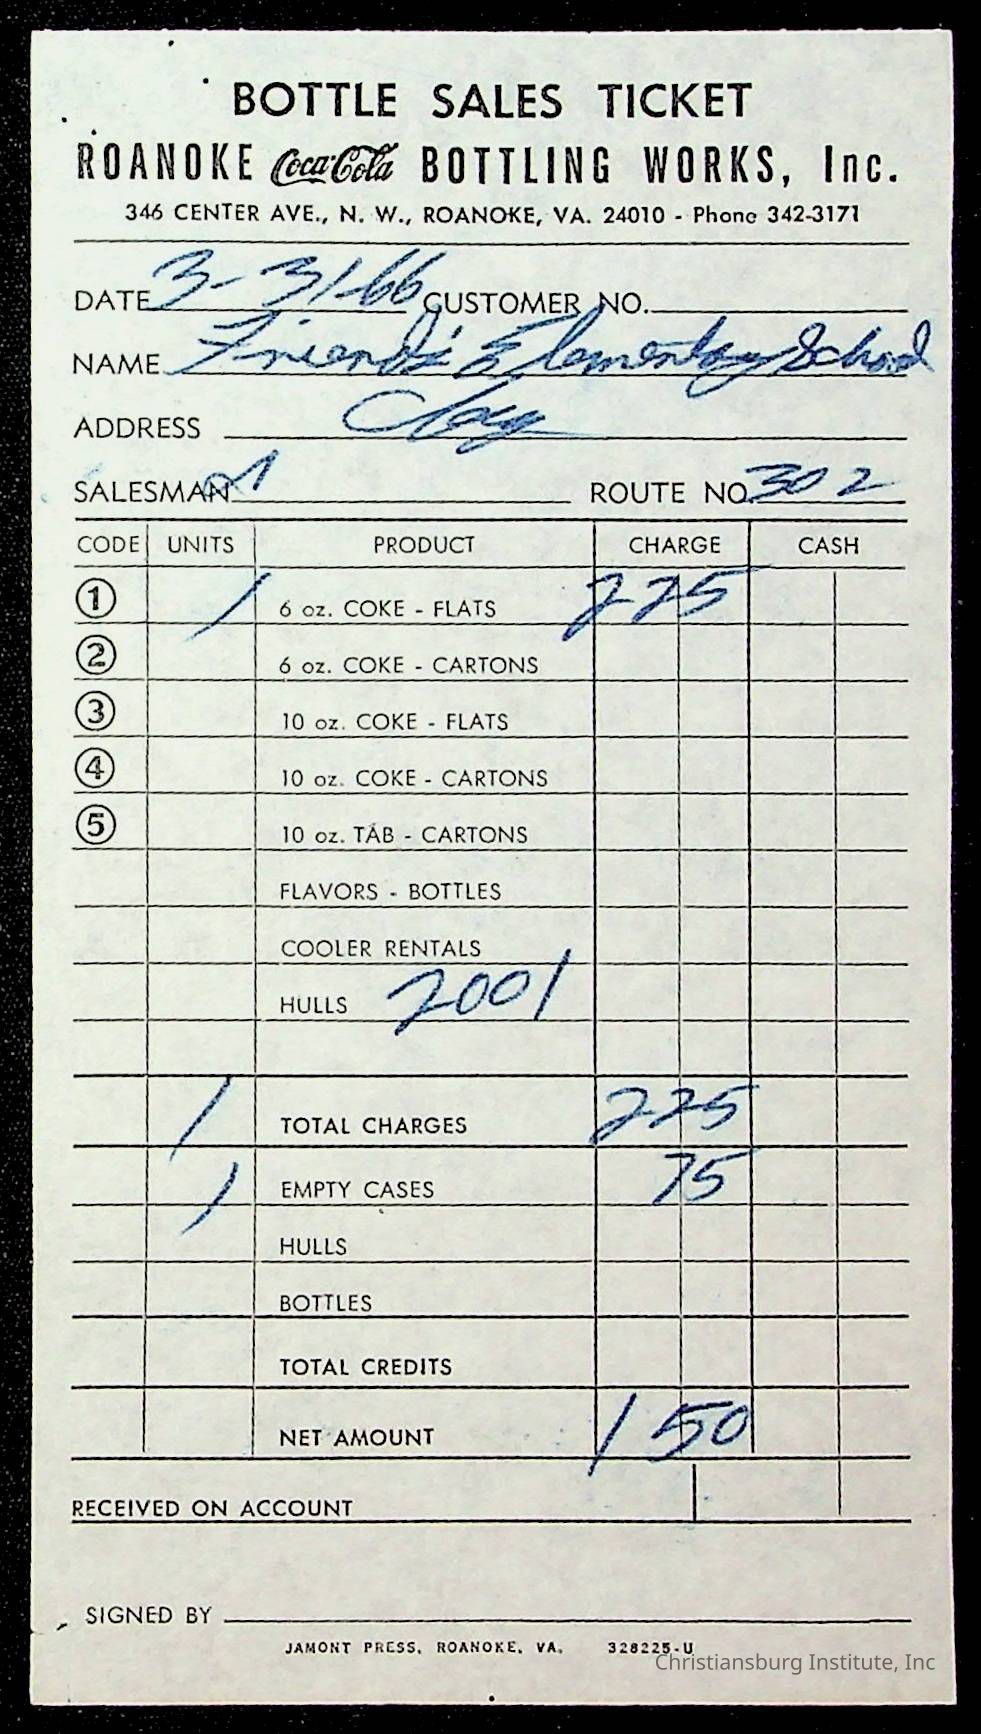 BOTTLE SALES TICKET
ROANOKE Coca-Cola BOTTLING WORKS, Inc.
346 CENTER AVE., N. W., ROANOKE, VA. 24010 - Phone 342-3171
DATE 3-31-66 CUSTOMER NO.
NAME Friends Elementary School
ADDRESS
SALESMAN ROUTE NO 302
CODE UNITS PRODUCT CHARGE CASH
1 1 6 oz. COKE - FLATS 2 25
2 6 oz. COKE - CARTONS
3 10 oz. COKE - FLATS
4 10 oz. COKE - CARTONS
5 10 oz. TAB - CARTONS
FLAVORS - BOTTLES
COOLER RENTALS
HULLS 2001
1 TOTAL CHARGES 2 25
1 EMPTY CASES 75
HULLS
BOTTLES
TOTAL CREDITS
NET AMOUNT 1 50
RECEIVED ON ACCOUNT
SIGNED BY
JAMONT PRESS, ROANOKE, VA. 328225-U
Christiansburg Institute, Inc